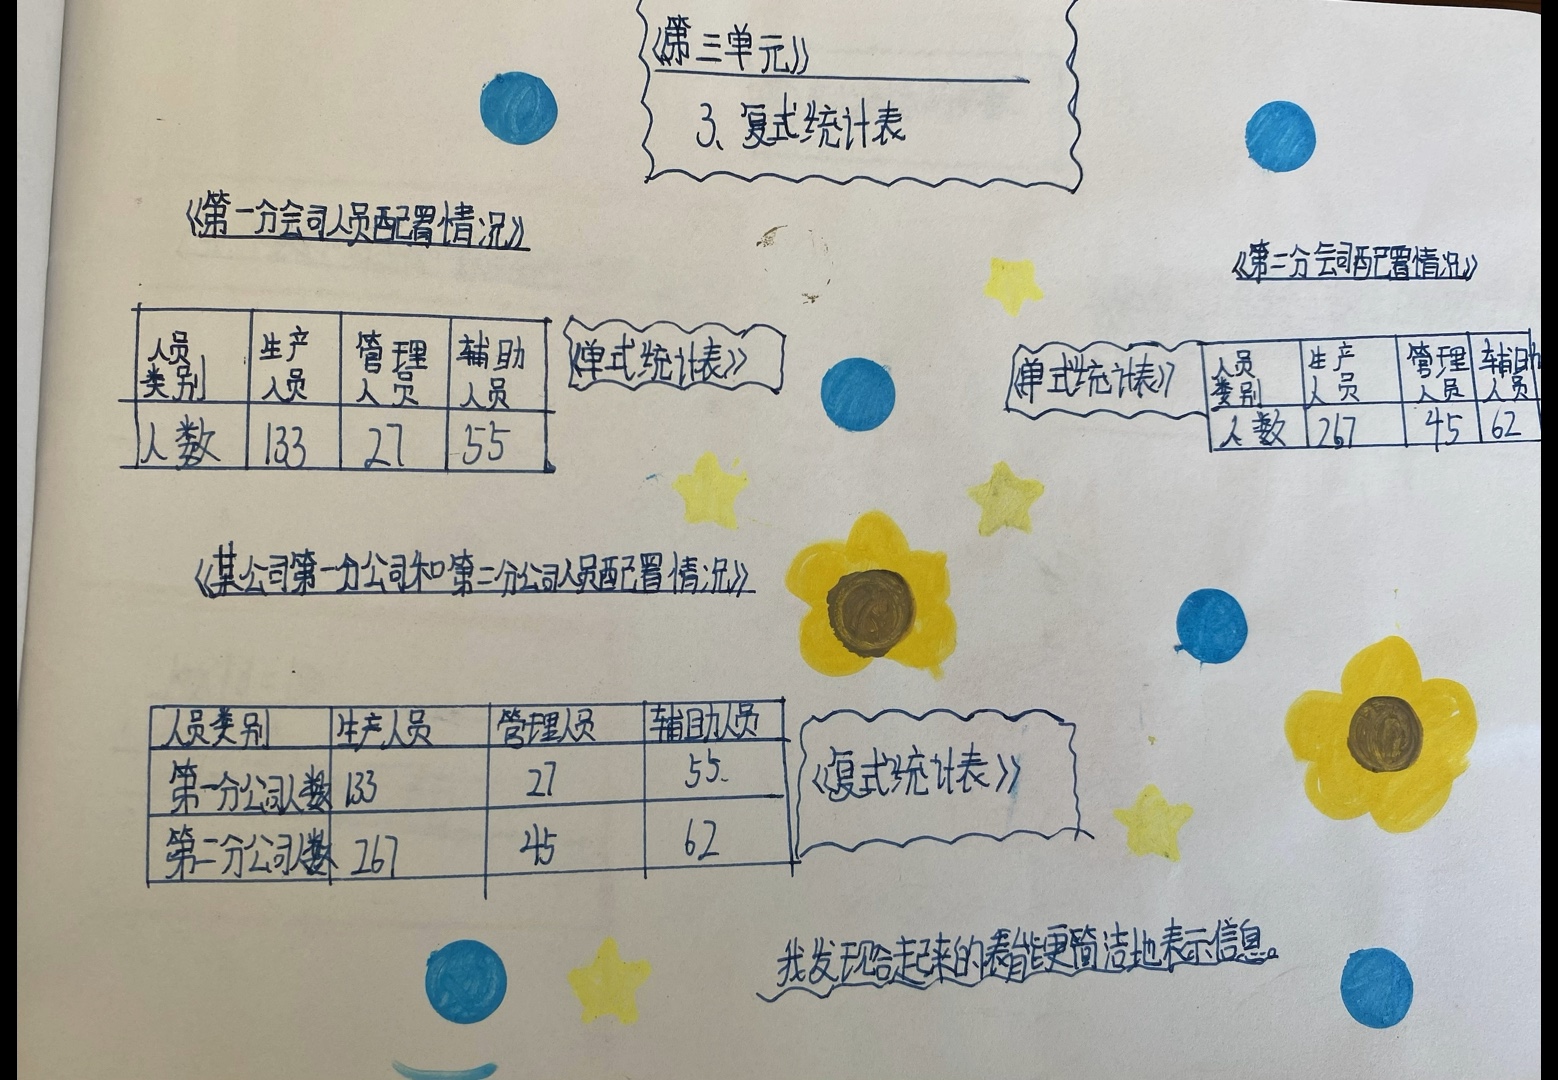 《第三单元》
3、复式统计表
《第一分会司人员配置情况》
《第二分会司配置情况》
人员类别 生产人员 管理人员 辅助人员
人数 133 27 55
《单式统计表》
《单式统计表》
人员类别 生产人员 管理人员 辅助人员
人数 267 45 62
《某公司第一分公司和第二分公司人员配置情况》
人员类别 生产人员 管理人员 辅助人员
第一分公司人数 133 27 55
第二分公司人数 267 45 62
《复式统计表》
我发现合起来的表能更简洁地表示信息。